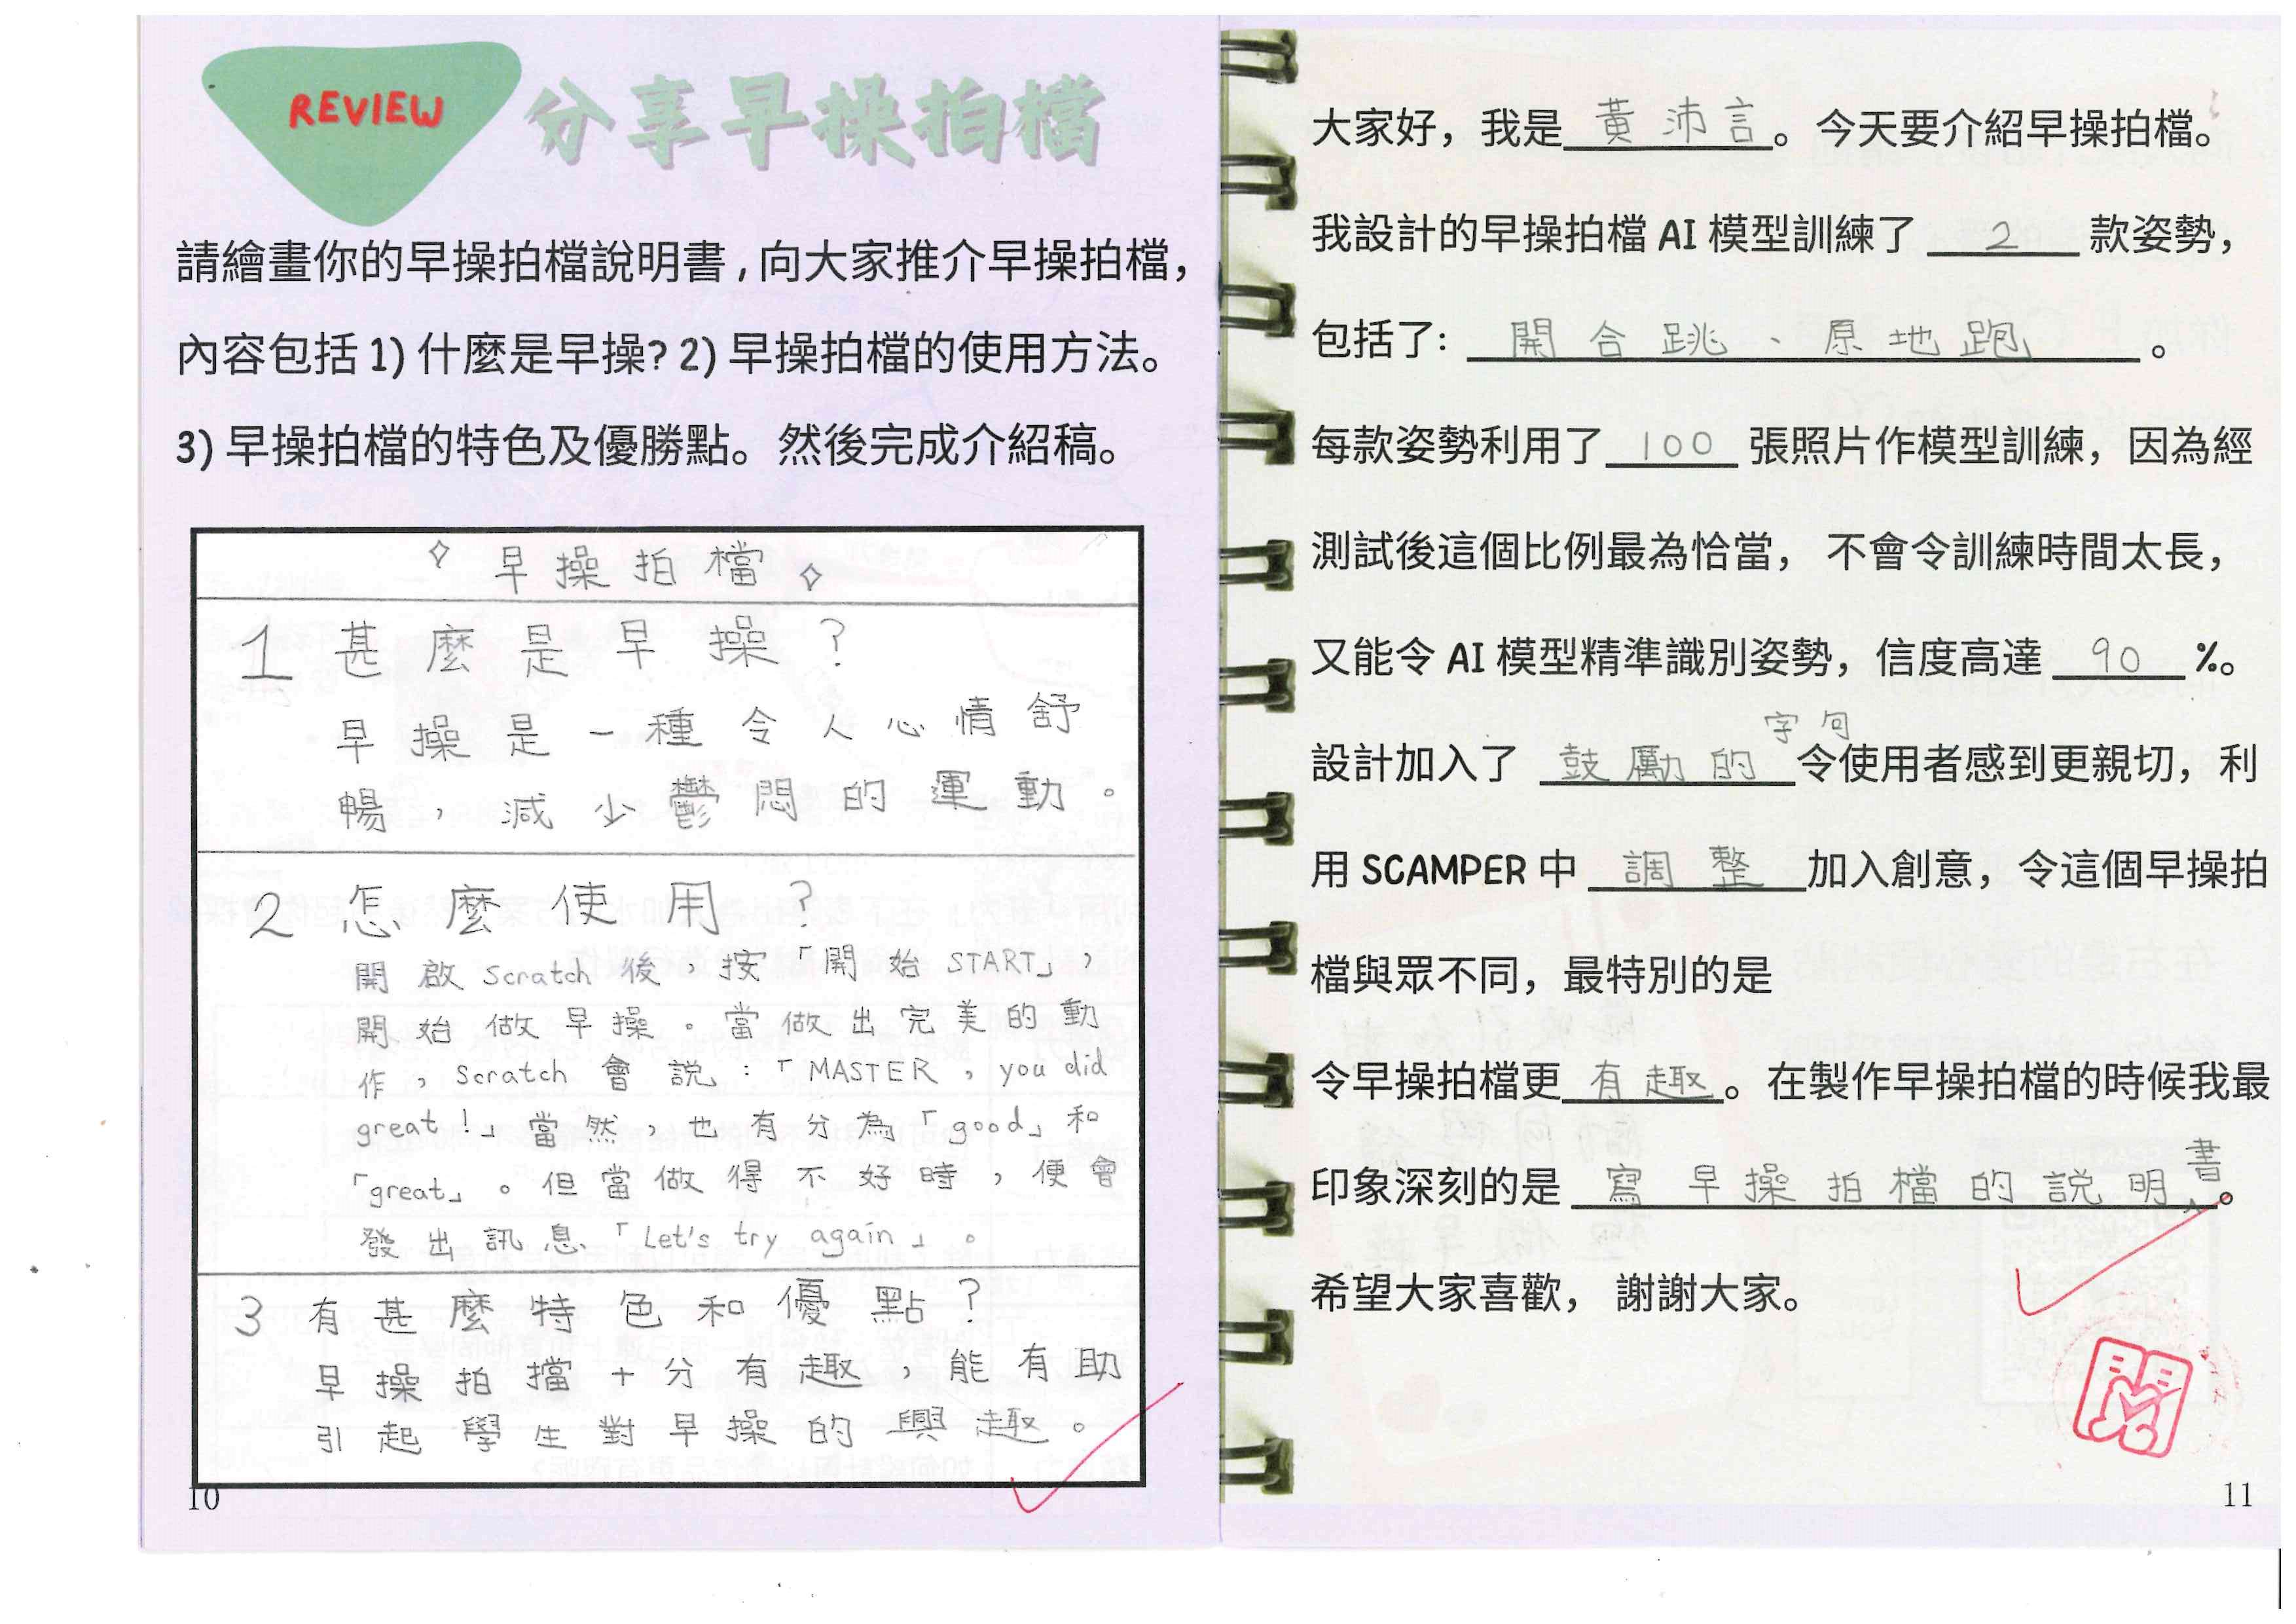 REVIEW 分享早操拍檔
請繪畫你的早操拍檔說明書，向大家推介早操拍檔，
內容包括 1) 什麼是早操? 2) 早操拍檔的使用方法。
3) 早操拍檔的特色及優勝點。然後完成介紹稿。
早操拍檔
1 甚麼是早操？
早操是一種令人心情舒
暢，減少鬱悶的運動。
2 怎麼使用？
開啟 Scratch 後，按「開始 START」，
開始做早操。當做出完美的動
作，Scratch 會説：「MASTER，you did
great！」當然，也有分為「good」和
「great」。但當做得不好時，便會
發出訊息「Let's try again」。
3 有甚麼特色和優點？
早操拍擋十分有趣，能有助
引起學生對早操的興趣。
10
大家好，我是黃沛言。今天要介紹早操拍檔。
我設計的早操拍檔 AI 模型訓練了 2 款姿勢，
包括了: 開合跳、原地跑。
每款姿勢利用了 100 張照片作模型訓練，因為經
測試後這個比例最為恰當， 不會令訓練時間太長，
又能令 AI 模型精準識別姿勢，信度高達 90 %。
設計加入了 鼓勵的字句令使用者感到更親切，利
用 SCAMPER 中 調整 加入創意，令這個早操拍
檔與眾不同，最特別的是
令早操拍檔更 有趣。在製作早操拍檔的時候我最
印象深刻的是 寫早操拍檔的説明書。
希望大家喜歡， 謝謝大家。
閱
11